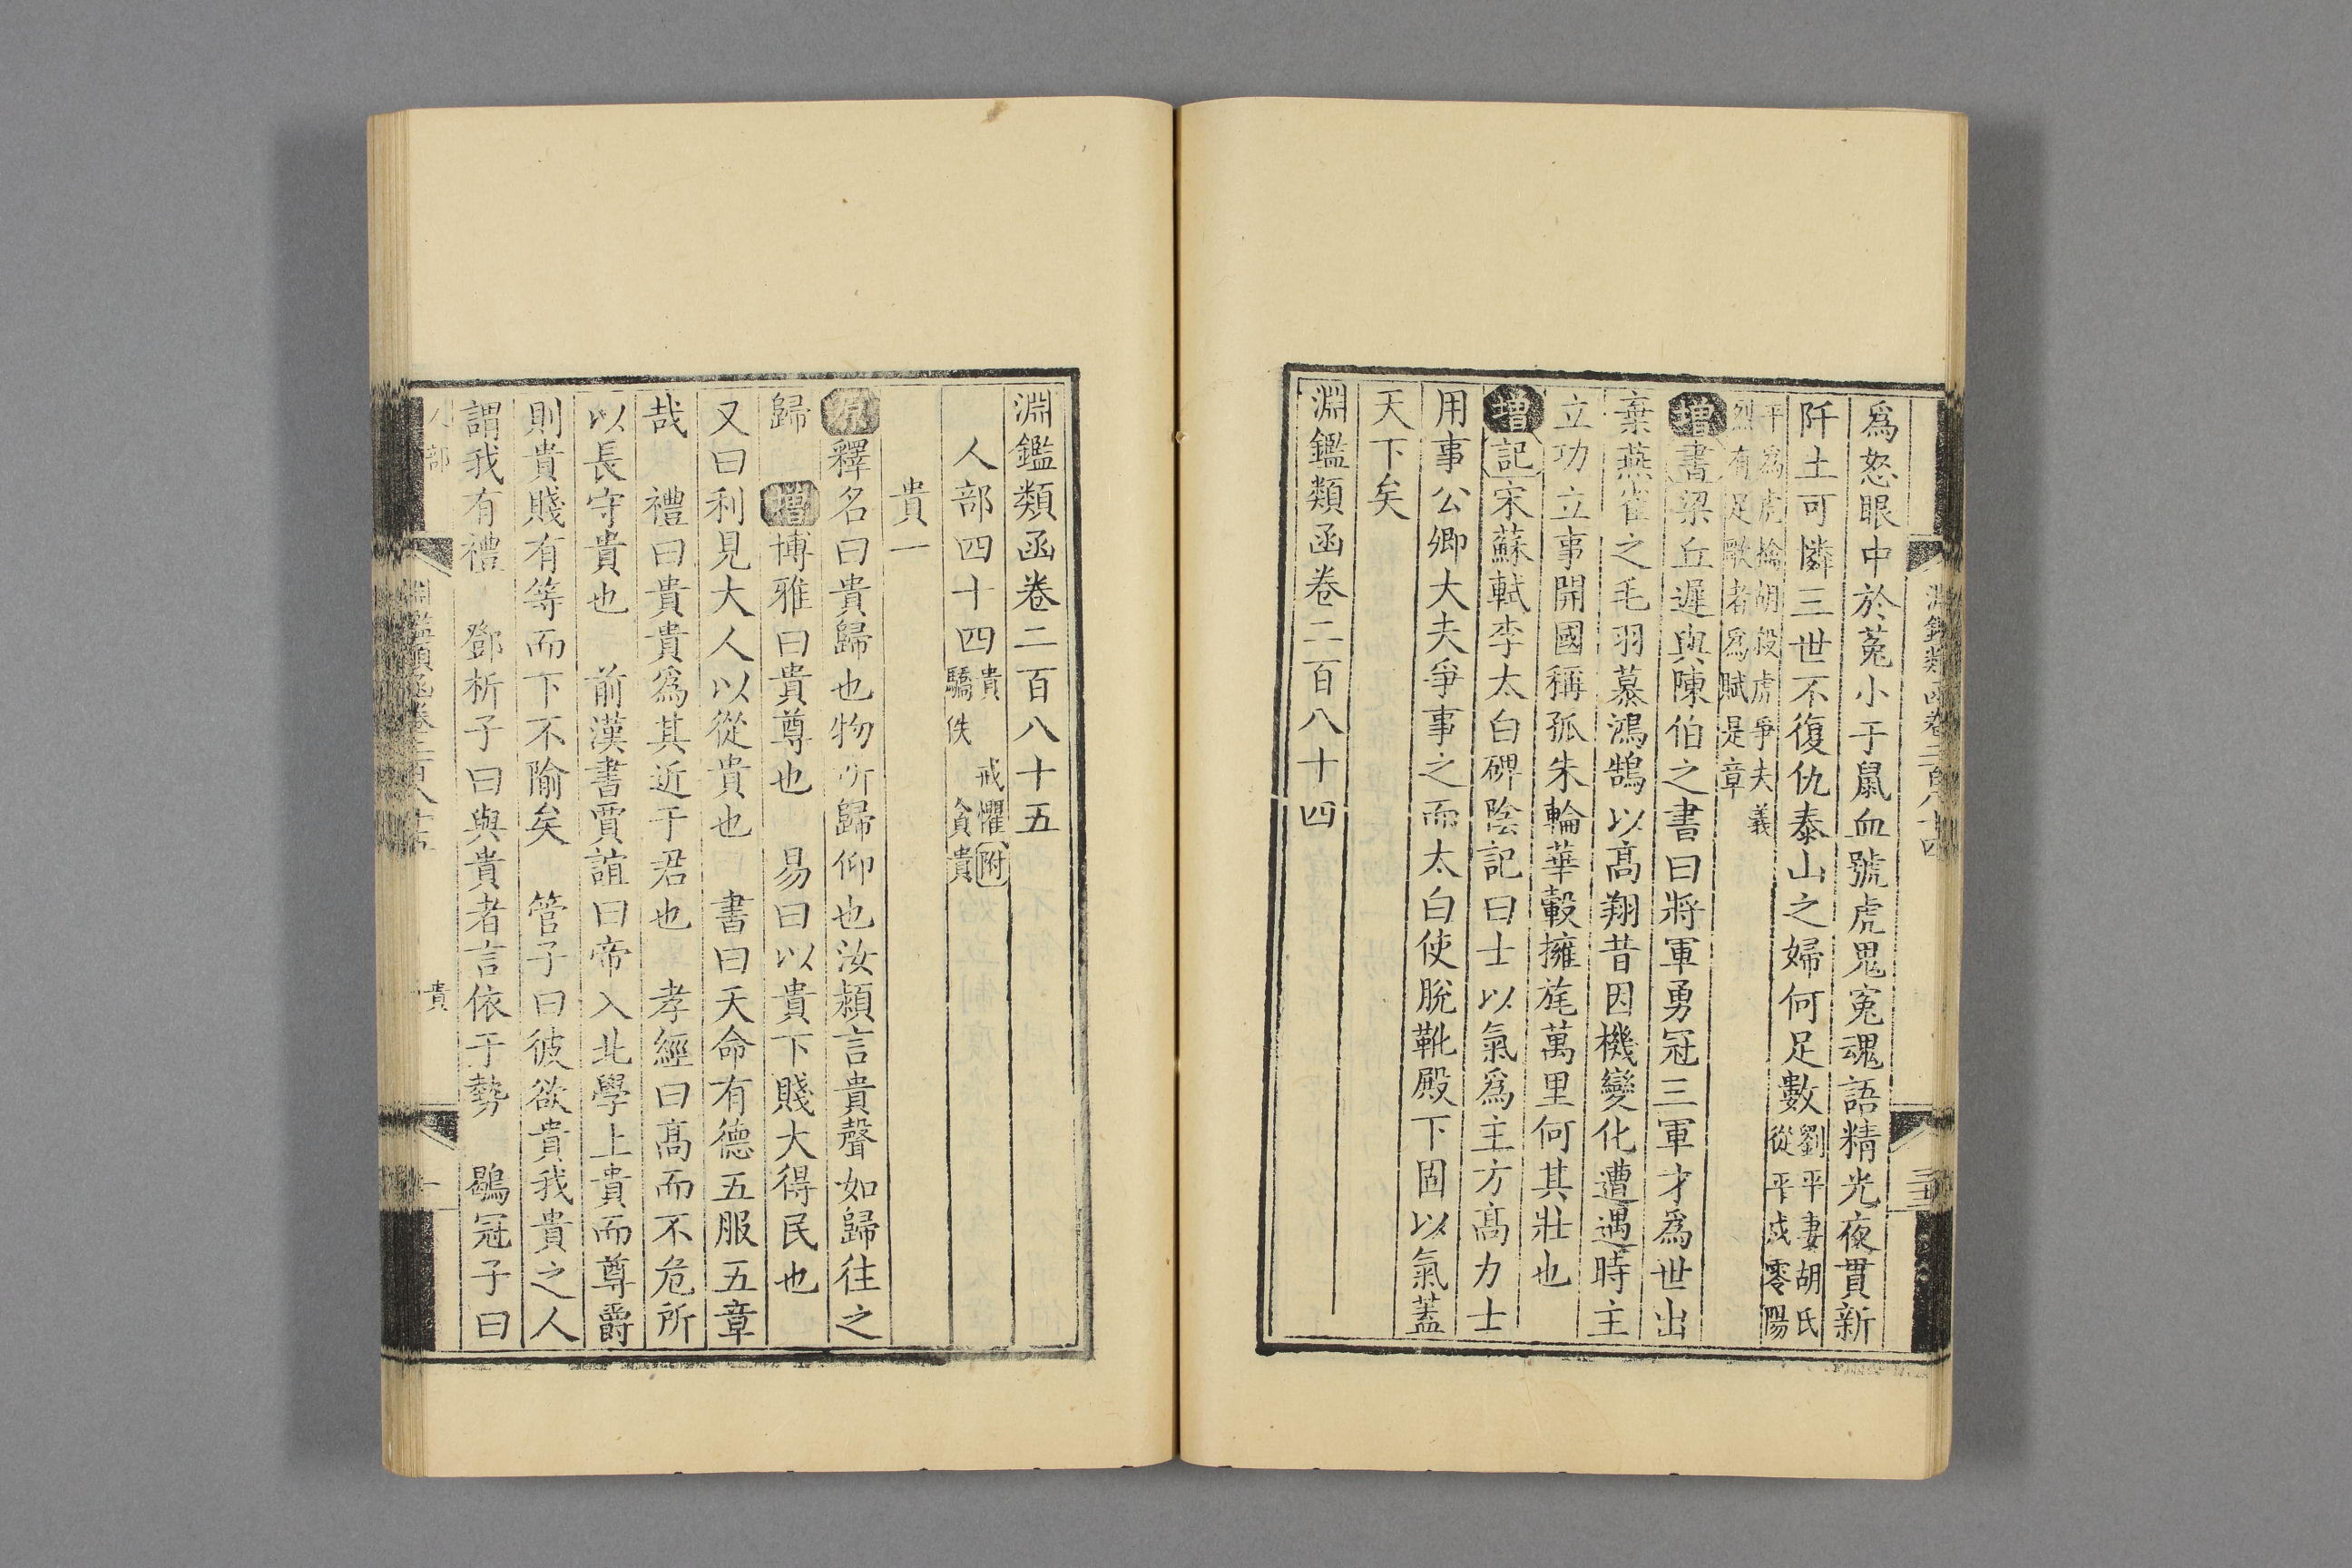 爲怒眼中於菟小于鼠血號虎鬼寃魂語精光夜貫新
阡土可憐三世不復仇泰山之婦何足數劉平妻胡氏
從平戍零陽
平爲虎擒胡殺虎爭夫義
烈有足歌者爲賦是章
增書梁丘遲與陳伯之書曰將軍勇冠三軍才爲世出
棄燕雀之毛羽慕鴻鵠以高翔昔因機變化遭遇時主
立功立事開國稱孤朱輪華轂擁旄萬里何其壯也
增記宋蘇軾李太白碑陰記曰士以氣爲主方高力士
用事公卿大夫爭事之而太白使脫靴殿下固以氣蓋
天下矣
淵鑑類函卷二百八十四
淵鑑類函卷二百八十五
人部四十四貴 戒懼附
驕佚 貪貴
貴一
原釋名曰貴歸也物所歸仰也汝潁言貴聲如歸往之
歸 增博雅曰貴尊也 易曰以貴下賤大得民也
又曰利見大人以從貴也 書曰天命有德五服五章
哉 禮曰貴貴爲其近于君也 孝經曰高而不危所
以長守貴也 前漢書賈誼曰帝入北學上貴而尊爵
則貴賤有等而下不隃矣 管子曰彼欲貴我貴之人
謂我有禮 鄧析子曰與貴者言依于勢 鶡冠子曰
人部
淵鑑類函卷二百八十五
貴
一